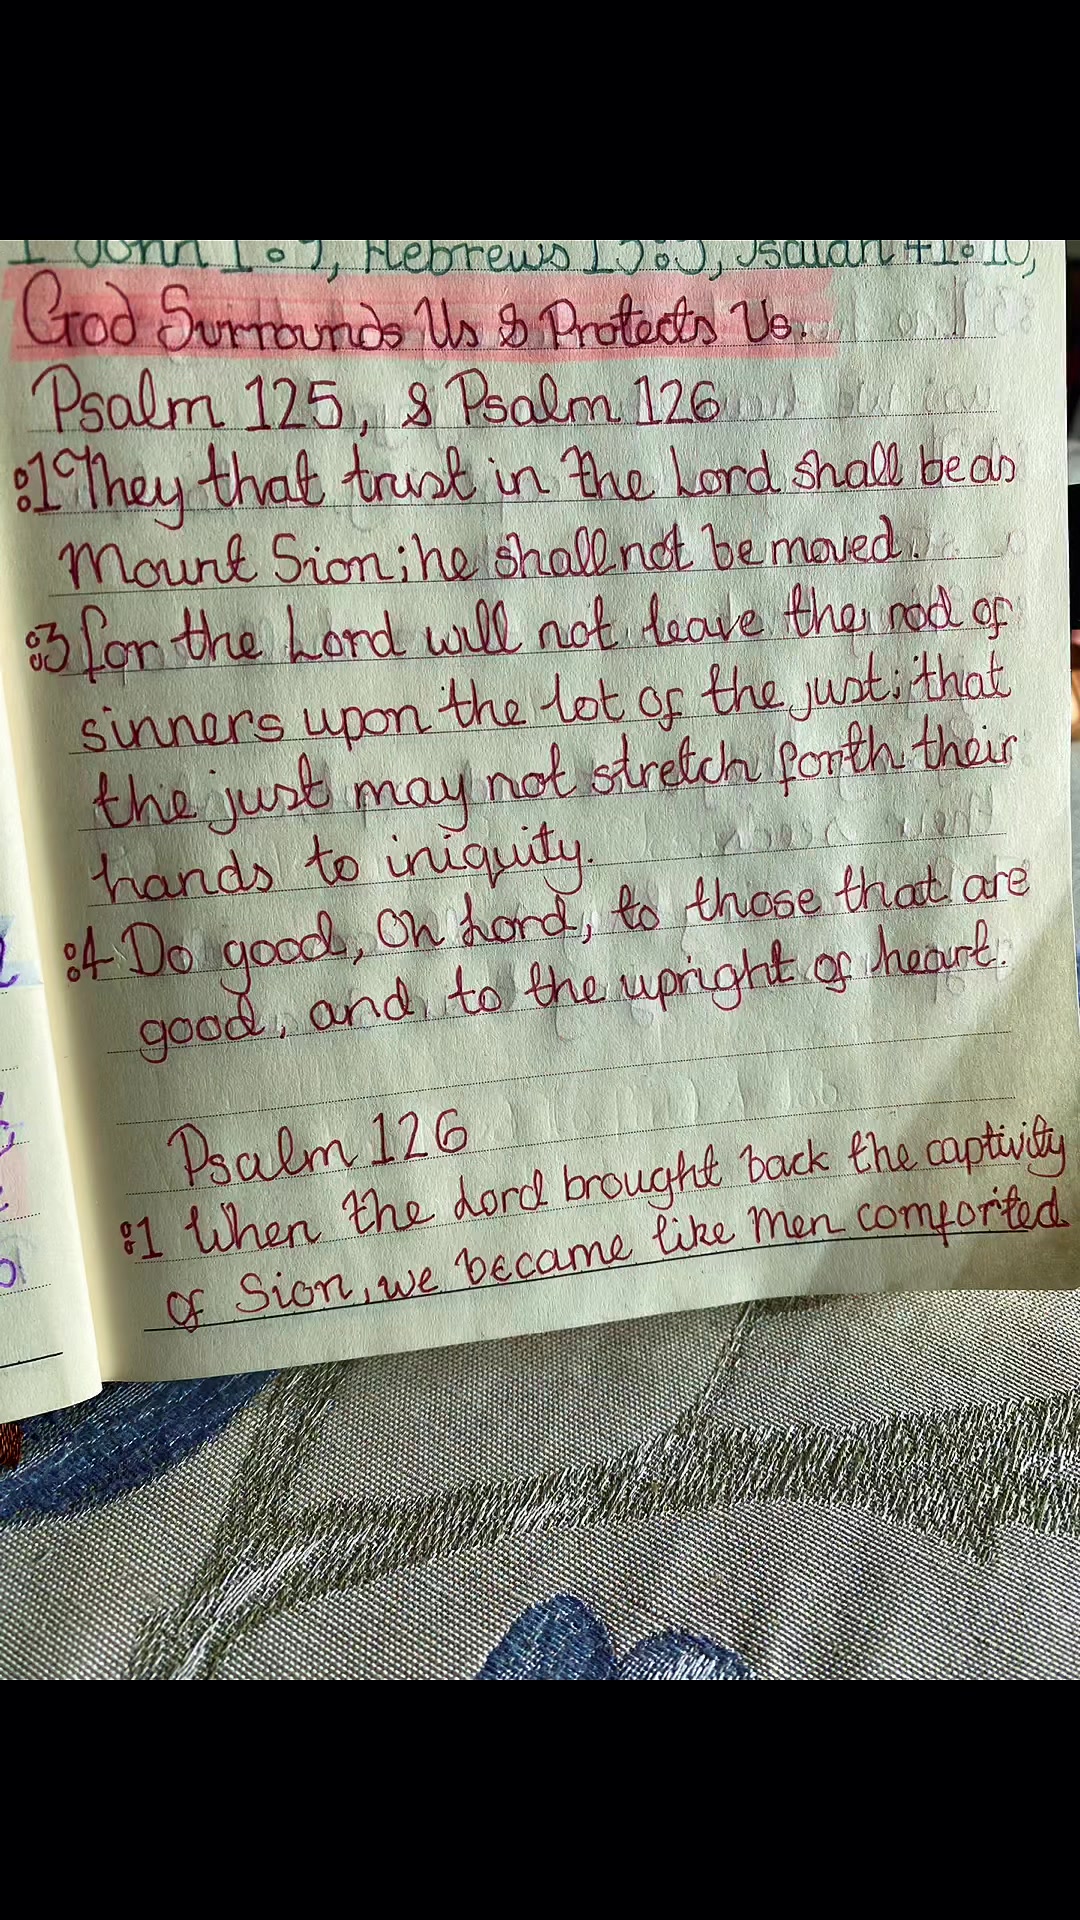 1 John 1:9, Hebrews 13:5, Isaiah 41:10,
God Surrounds Us & Protects Us.
Psalm 125, & Psalm 126
:1 They that trust in the Lord shall be as
Mount Sion; he shall not be moved.
:3 for the Lord will not leave the rod of
sinners upon the lot of the just; that
the just may not stretch forth their
hands to iniquity.
:4 Do good, Oh Lord, to those that are
good, and to the upright of heart.
Psalm 126
:1 When the Lord brought back the captivity
of Sion, we became like men comforted